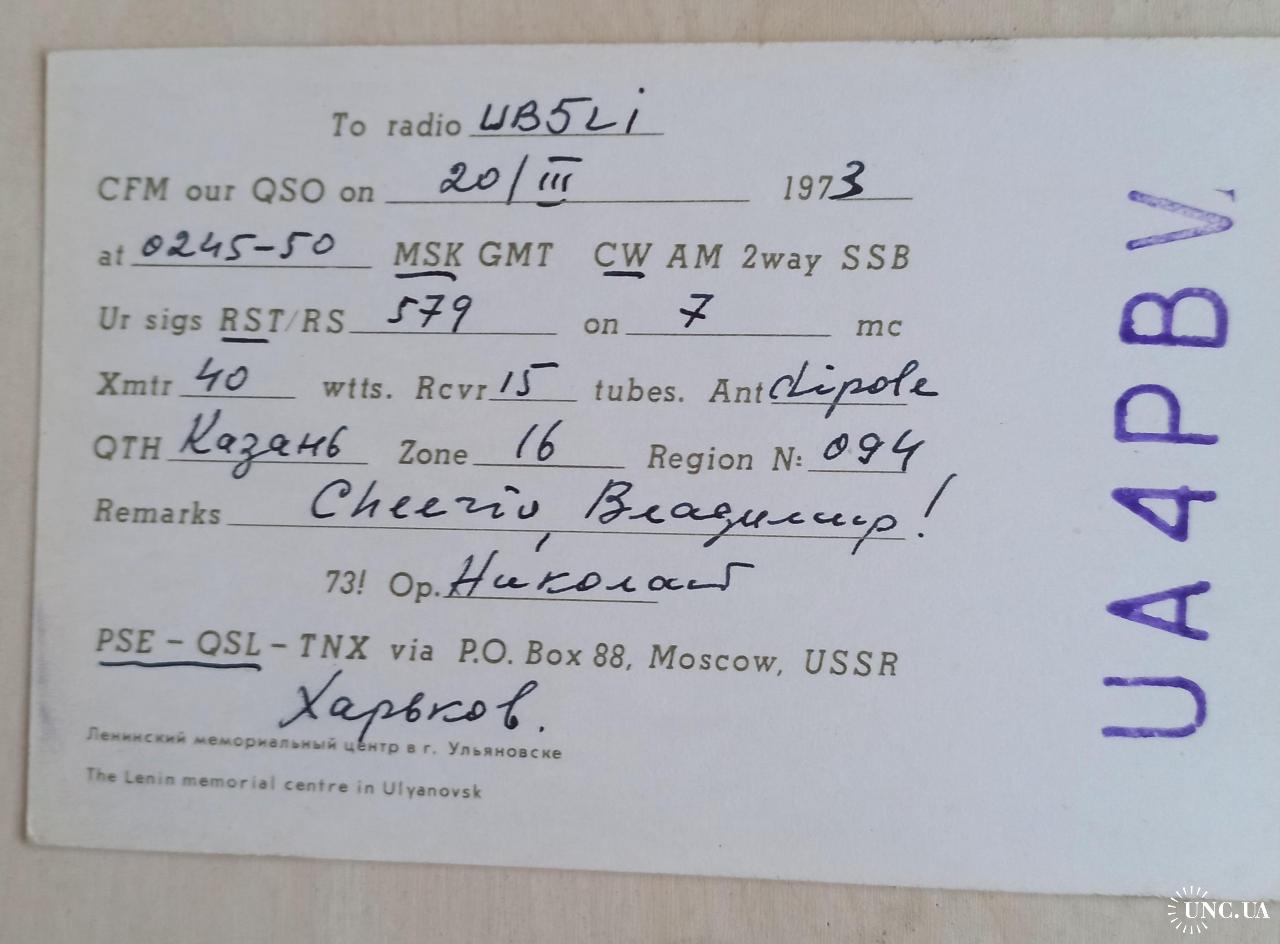 To radio UB5Li
CFM our QSO on 20/III 1973
at 0245-50 MSK GMT CW AM 2way SSB
Ur sigs RST/RS 579 on 7 mc
Xmtr 40 wtts. Rcvr 15 tubes. Ant dipole
QTH Казань Zone 16 Region N: 094
Remarks Cheerio, Владимир!
73! Op. Николай
PSE - QSL - TNX via P.O. Box 88, Moscow, USSR
Харьков.
Ленинский мемориальный центр в г. Ульяновске
The Lenin memorial centre in Ulyanovsk
UA4PBV.
UNC.UA